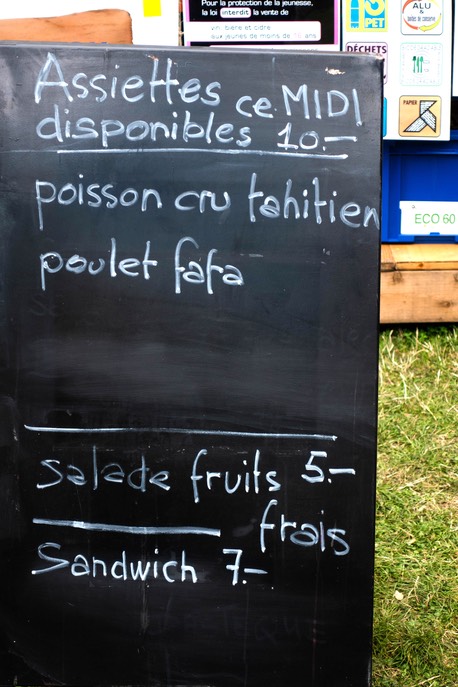 Pour la protection de la jeunesse,
la loi interdit la vente de
vin, bière et cidre
aux jeunes de moins de
PET
ALU
& boîtes de conserve
DÉCHETS
PAPIER
ECO 60
Assiettes ce MIDI
disponibles 10.-
poisson cru tahitien
poulet fafa
salade fruits 5.-
frais
Sandwich 7.-